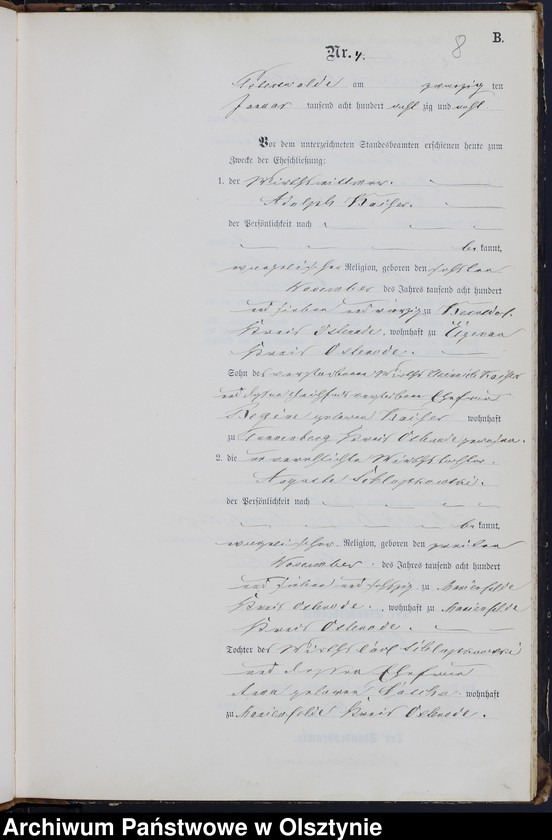 B.
8
Nr. 4.
am zwanzig ten
Januar tausend acht hundert acht zig und acht
Vor dem unterzeichneten Standesbeamten erschienen heute zum
Zwecke der Eheschließung:
1. der Wirthswittwer
Adolph Kaiser.
der Persönlichkeit nach
be kannt,
evangelischer Religion, geboren den
November des Jahres tausend acht hundert
und sieben und vierzig zu
Kreis Osterode, wohnhaft zu
Kreis Osterode.
Sohn des verstorbenen Wirths Kaiser
und dessen Ehefrau
Regine geborenen Kaiser wohnhaft
zu Tannenberg Kreis Osterode
2. die unverehelichte Wirthstochter
Auguste
der Persönlichkeit nach
be kannt,
evangelischer Religion, geboren den zweiten
November des Jahres tausend acht hundert
und sieben und sechszig zu Marienfelde
Kreis Osterode, wohnhaft zu Marienfelde
Kreis Osterode.
Tochter des Wirths Carl
und dessen Ehefrau
geborenen wohnhaft
zu Marienfelde Kreis Osterode.
Archiwum Państwowe w Olsztynie